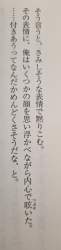 そう言うと、さみしそうな表情で黙りこむ。
その表情に、俺はいくつかの顔を思い浮かべながら内心で呟いた。
……付きあうってなんだかめんどくさそうだな、と。